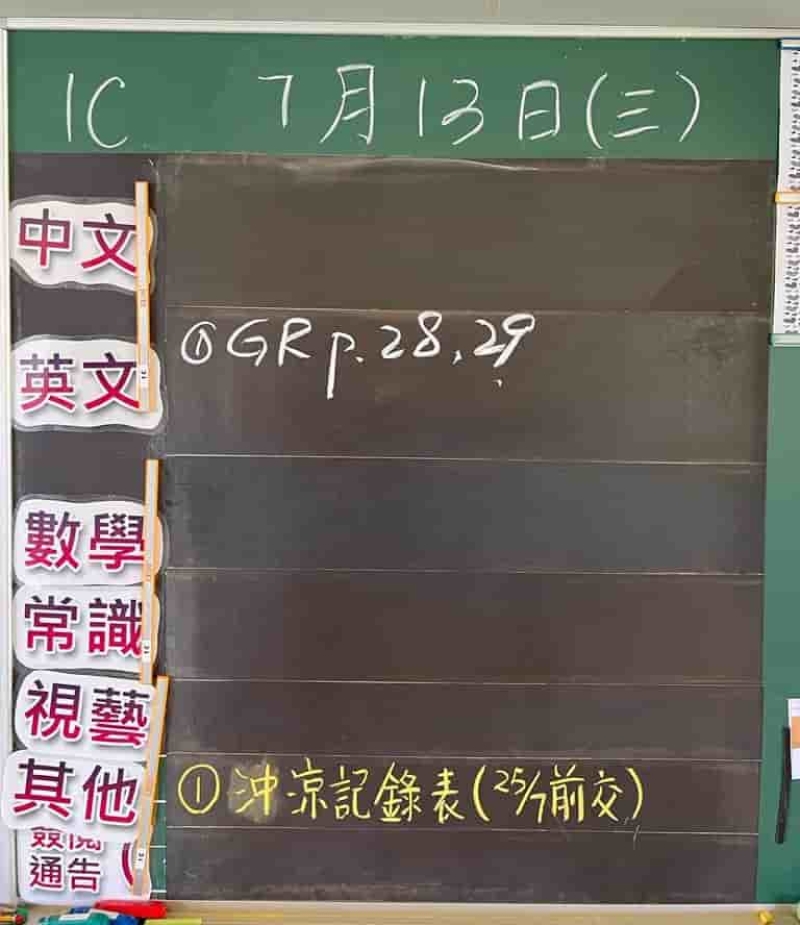 1C 7月13日(三)
中文
英文 ①GR p.28,29
數學
常識
視藝
其他 ①沖涼記錄表(25/7前交)
簽閱
通告